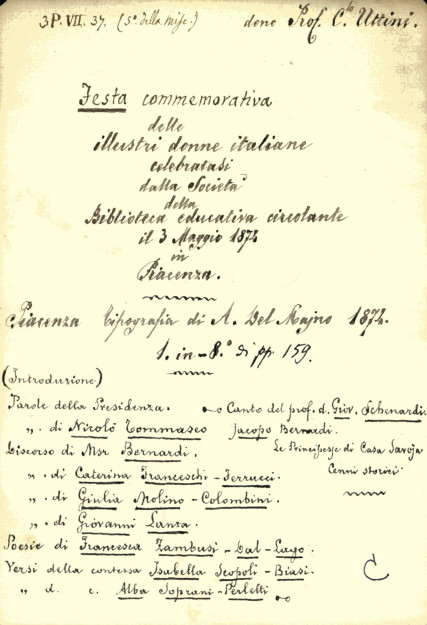 3P. VII. 37. (5° della Misc.) dono Prof. C.lo Uttini.
Festa commemorativa
delle
illustri donne italiane
celebratasi
dalla Società
della
Biblioteca educativa circolante
il 3 Maggio 1872
in
Piacenza.
Piacenza Tipografia di A. Del Majno 1872.
1. in-8.° di pp. 159.
(Introduzione)
Parole della Presidenza.
„ di Nicolò Tommaseo
Discorso di Msr Bernardi.
„ di Caterina Franceschi-Ferrucci.
„ di Giulia Molino-Colombini.
„ di Giovanni Lanza.
Poesie di Francesca Zambusi-Dal-Lago.
Versi della contessa Isabella Scopoli-Biasi.
„ d. c. Alba Soprani-Perletti
Canto del prof. d. Giov. Schenardi.
Jacopo Bernardi.
Le Principesse di Casa Savoja
Cenni storici
C